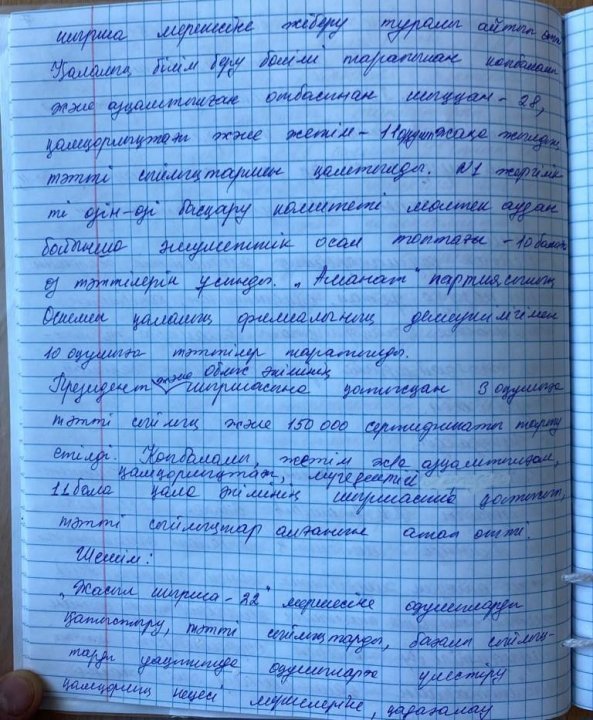 шырша мерекесіне жіберу туралы айтып өтті
Қаланың білім беру бөлімі тарапынан көпбалалы
және аз қамтылған отбасынан шыққан - 28,
қамқорлықтағы және жетім - 11 оқушы жаңа жылдық
тәтті сыйлықтармен қамтылды. №1 жергілік
ті өзін-өзі басқару комитеті мөлтек аудан
бойынша әлеуметтік осал топтағы - 10 балаға
өз тәттілерін ұсынды. „Аманат" партиясының
Өскемен қалалық филиалының демеушілігімен
10 оқушыға тәттілер таратылды.
және облыс әкімінің
Президент шыршасына қатысқан 3 оқушыға
тәтті сыйлық және 150 000 сертификаты тарту
етілді. Көпбалалы, жетім және аз қамтылған,
қамқорлықтағы, мүгедектігі
11 бала қала әкімінің шыршасына қатысып,
тәтті сыйлықтар алғанын атап өтті.
Шешім:
„Жасыл шырша - 22" мерекесіне оқушыларды
қатыстыру, тәтті сыйлықтарды, бағалы сыйлық-
тарды уақтылы оқушыларға үлестіру
қамқорлық кеңесі мүшелеріне, қадағалау